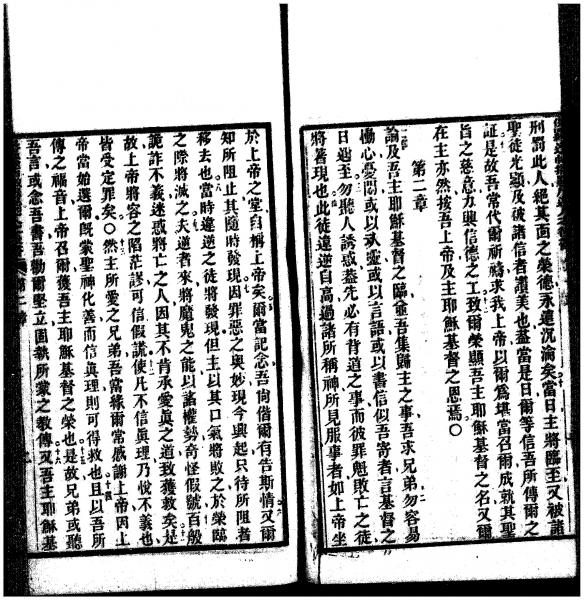 刑罰此人絕其面之榮德永遠沉淪矣當日主將臨至又被諸
聖徒光顯及被諸信者讚美也蓋當是日爾等信吾所傳爾之
証是故吾常代爾祈禱求我上帝以爾爲堪當召爾成就其聖
旨之慈意力奧信德之工致爾榮顯吾主耶穌基督之名又爾
在主亦然按吾上帝及主耶穌基督之恩焉○
第二章
論及吾主耶穌基督之臨並吾集歸主之事吾求兄弟勿容易
慟心憂悶或以𣱵靈或以言語或以書信似吾寄者言基督之
日趨至勿聽人誘惑蓋先必有背道之事而彼罪魁敗亡之徒
將著現也此徒違逆自高過諸所稱神所見服事者如上帝坐
於上帝之堂自稱上帝矣爾當記念吾尙偕爾有告斯情又爾
知所阻止其隨時發現因罪惡之奧妙現今興起只待所阻者
移去也當時違逆之徒將發現但主以其口氣將敗之於榮臨
之際將滅之夫逆者來將魔鬼之能以諸權勢奇怪假號百般
詭詐不義迷惑將亡之人因其不肯承愛眞之道致獲救矣是
故上帝將容之陷茫謬可信假謊使凡不信眞理乃悅不義也
皆受定罪矣○然主所愛之兄弟吾當緣爾常感謝上帝因上
帝當始選爾旣蒙聖神化善而信眞理則可得救也且以吾所
傳之福音上帝召爾獲吾主耶穌基督之榮也是故兄弟或聽
吾言或念吾書吾勸爾堅立固執所蒙之教傳又吾主耶穌基